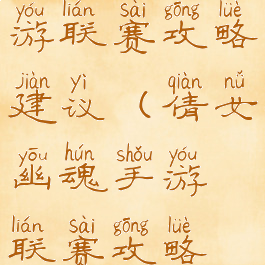 yóu lián sài gōng lüè
游联赛攻略
jiàn yì qiàn nǚ
建议（倩女
yōu hún shǒu yóu
幽魂手游
lián sài gōng lüè
联赛攻略